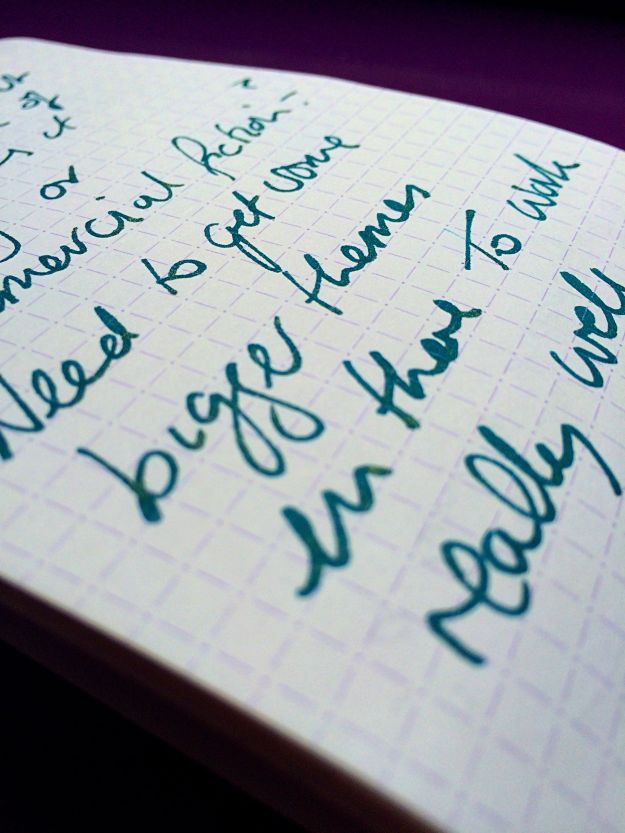 of
it
or
mmercial fiction?-
Need to get some
bigger themes
in there to work
really well